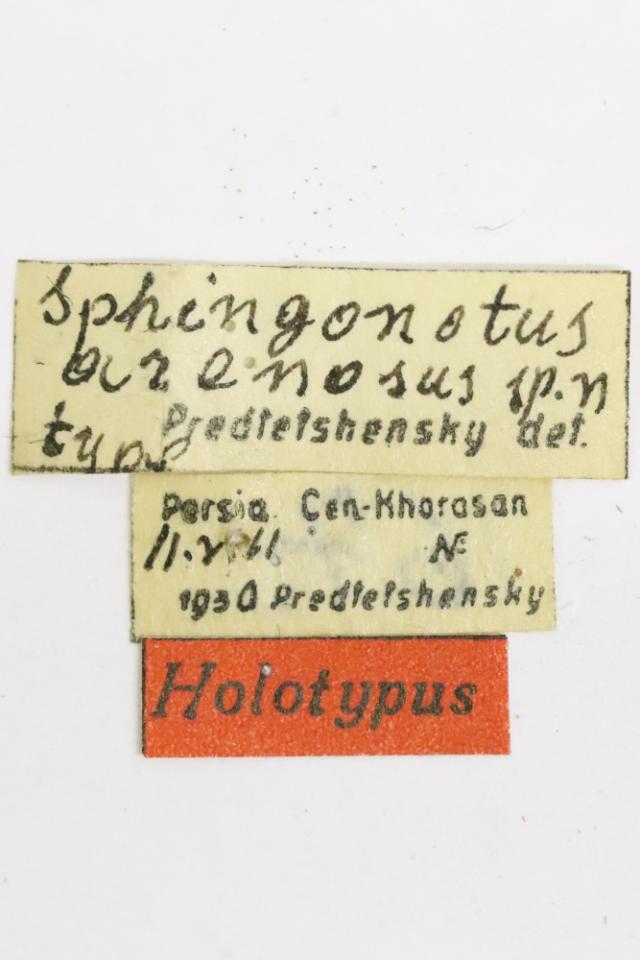 Sphingonotus
arenosus sp.n
type Predtetshensky det.
Persia Cen-Khorasan
11.VIII №
1930 Predtetshensky
Holotypus